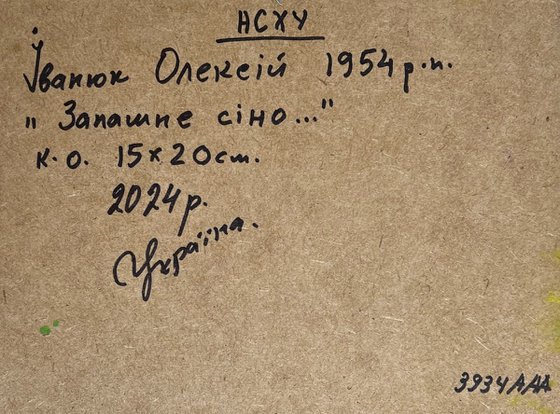 НСХУ
Іванюк Олексій 1954 р.н.
"Запашне сіно..."
к.о. 15х20см.
2024р.
Україна.
3934 ААА